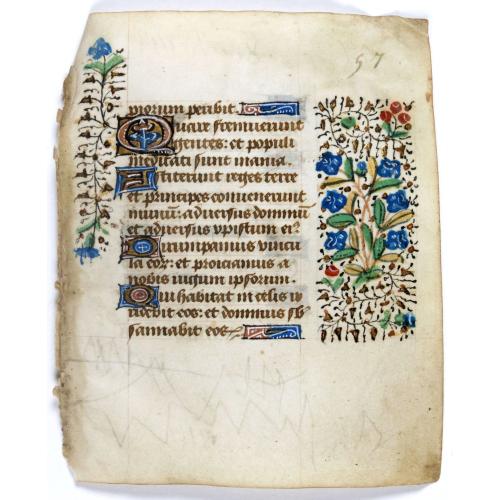 57
piorum peribit.
Quare fremuerunt
gentes: et populi
meditati sunt inania.
Astiterunt reges terre
et principes convenerunt
in unum: adversus dominum
et adversus christum ei9
Dirumpamus vincu
la eor: et proiciamus a
nobis iugum ipsorum.
Qui habitat in celis ir
ridebit eos: et dominus sb
sannabit eos